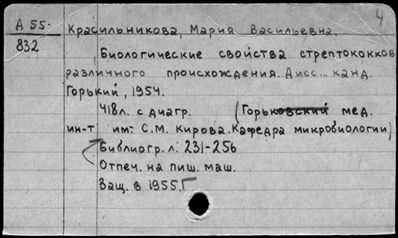 4
А 55. Красильникова, Мария Васильевна.
832
Биологические свойства стрептококков
различного происхождения. Дисс... канд.
Горький, 1954.
418л. с диагр. (Горьковский мед.
ин-т им. С.М. Кирова. Кафедра микробиологии)
Библиогр. л. 231-256
Отпеч. на пиш. маш.
Защ. в 1955.Г